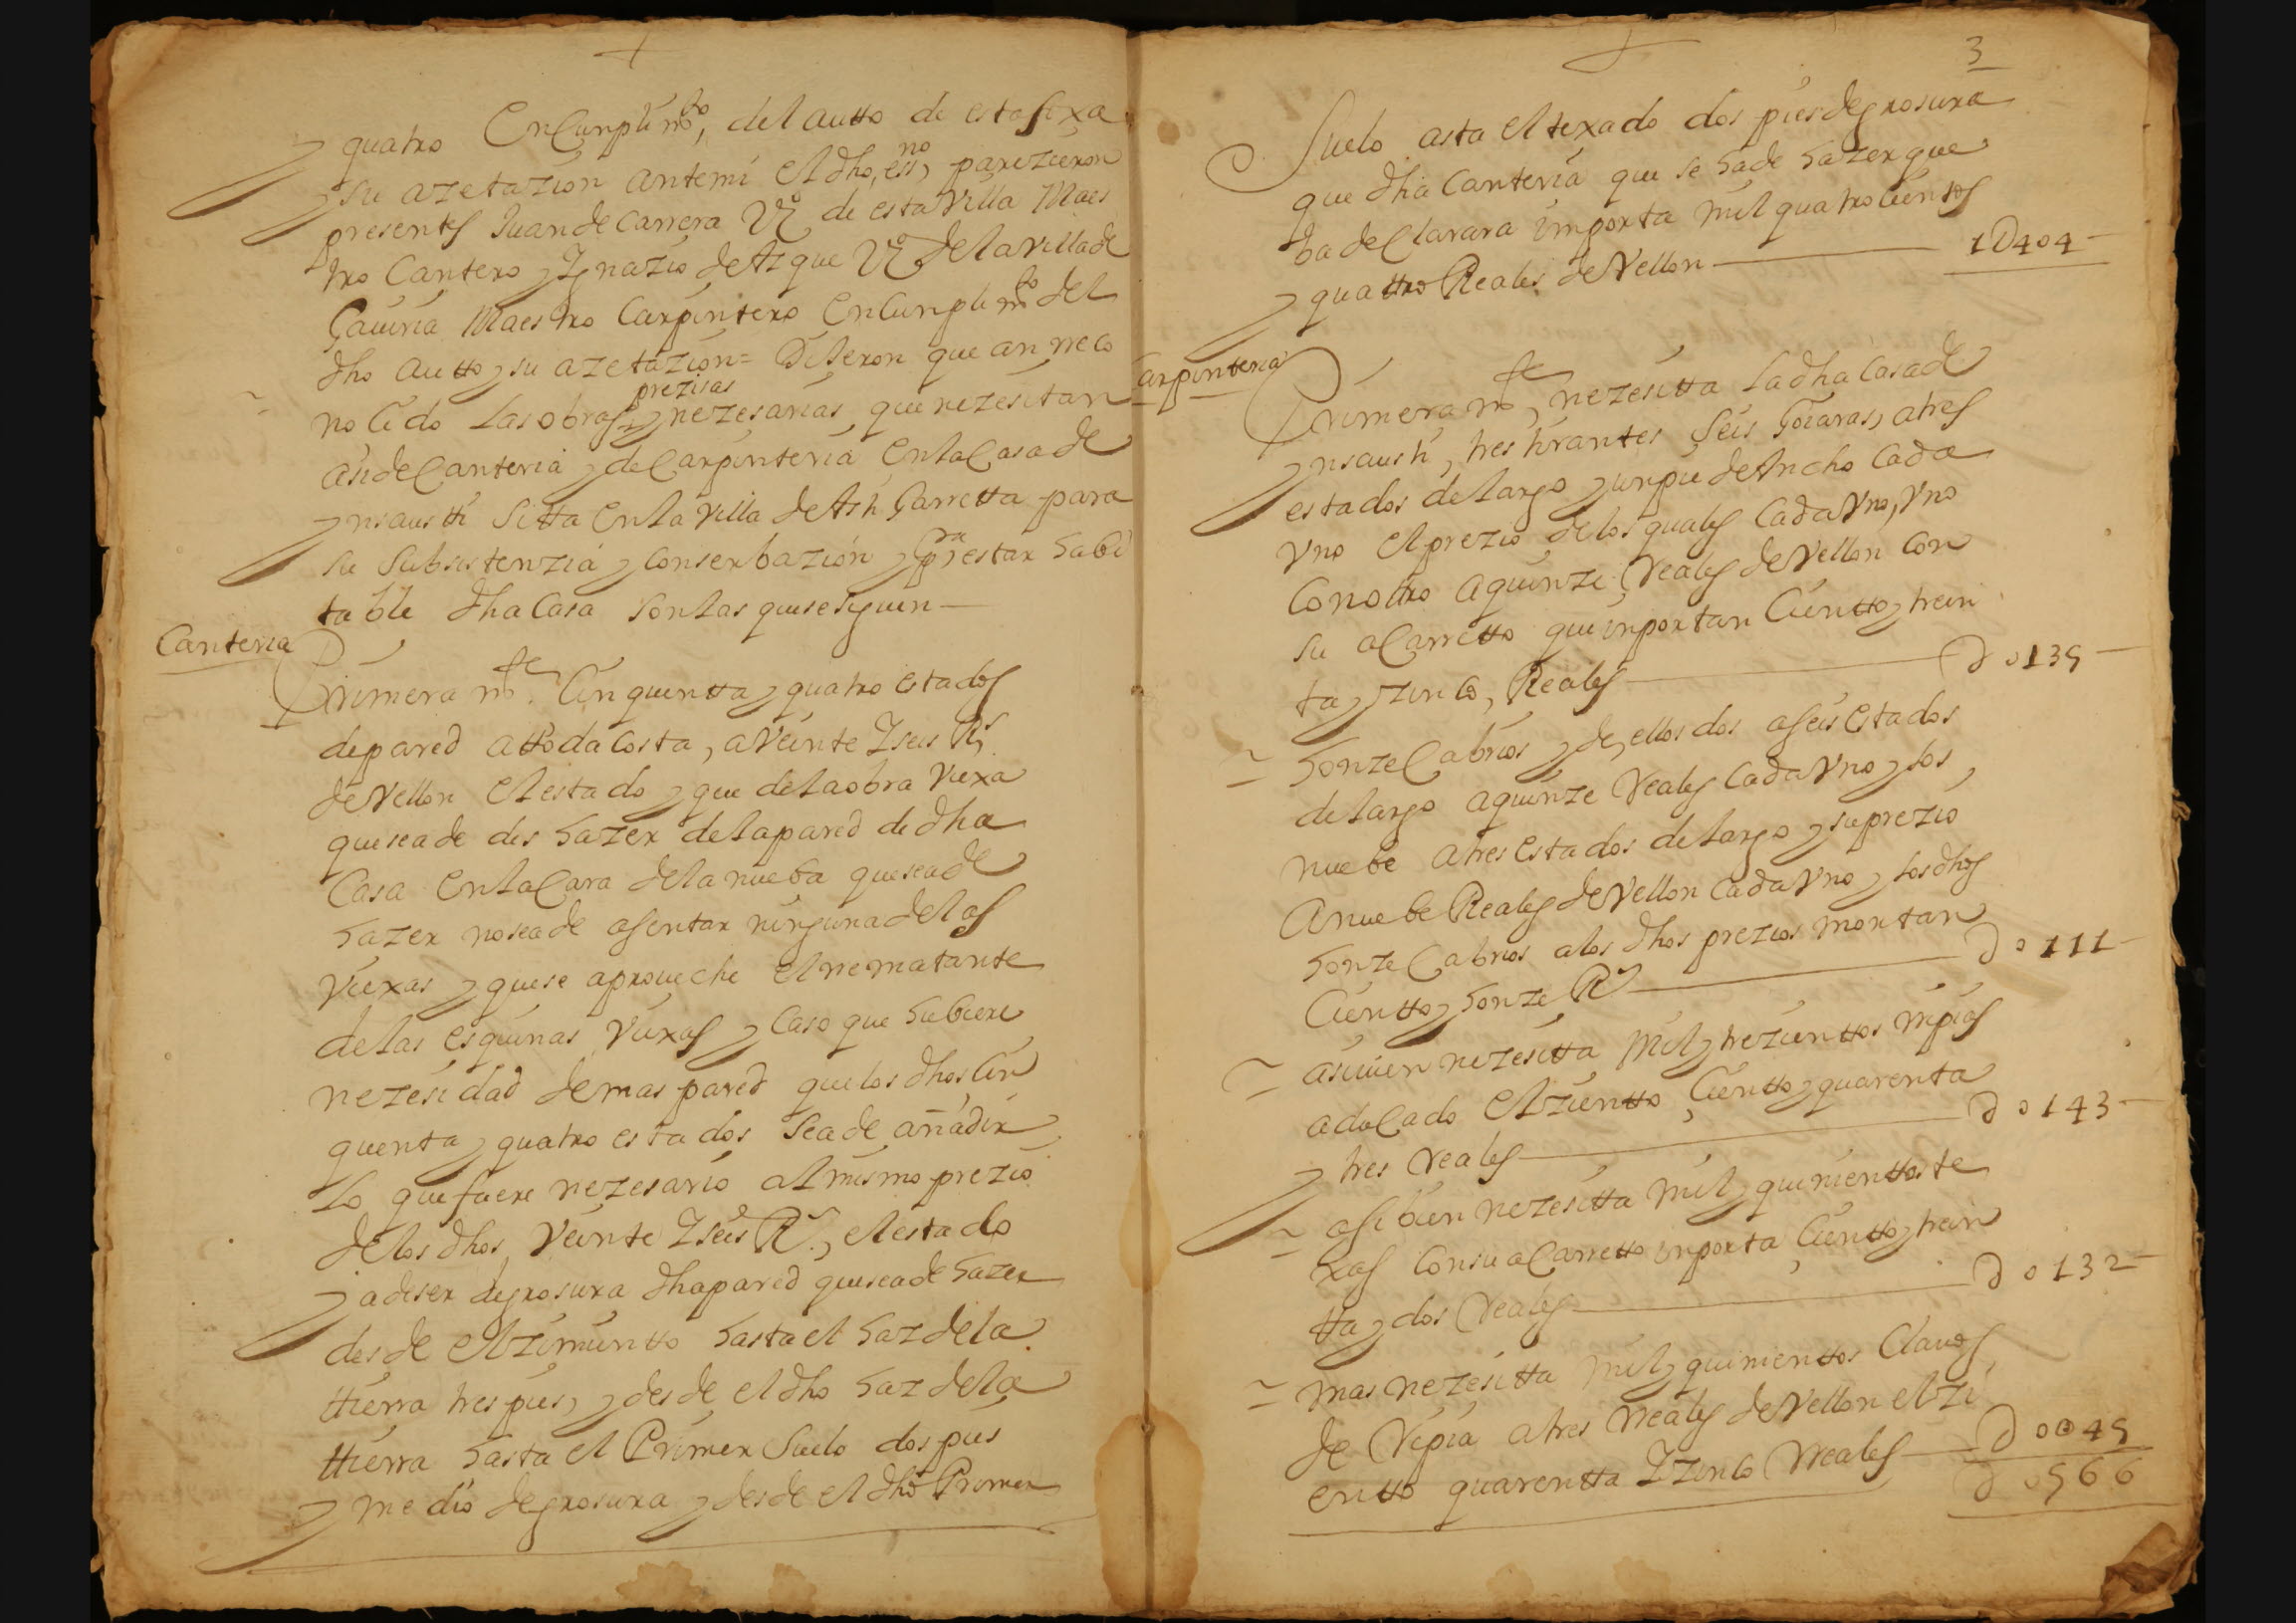 y quatro En Cunplimto, del autto de esta foxa
y su azetazion antemi el dho, essno, parezieron
presentes Juan de Carrera Vº de esta Villa Maes
tro Cantero y Ygnazio de Azque Vº de la Villa de
Gauiria Maestro Carpintero en Cunplimto del
dho autto y su azetazion = Dixeron que an reco
prezisas
nocido las obras y nezesarias que nezesitan
asi de Canteria y de Carpinteria en la Casa de
ynsausti sitta en la Villa de Astigarretta para
su subsistenzia y conserbazion y pra estar habi
table dha Casa son las que se siguen —
Canteria
Primera mte. Cinquentta y quatro estados
de pared a ttoda Costa, a Veinte Y seis Rs
de Vellon el estado y que de la obra Viexa
que sea de des hazer de la pared de dha
Casa en la Cara de la nueba que sea de
hazer no sea de asentar ninguna de las
Viexas y que se aproueche el rematante
de las esquinas Viexas y Caso que hubiere
nezesidad de mas pared que los dhos Cin
quenta y quatro estados sea de añadir
lo que fuere nezesario al mismo prezio
de los dhos Veinte Y seis Rs, el estado
y a de ser de grosura dha pared que sea de hazer
desde el zimientto hasta el haz de la
ttierra tres pies, y desde el dho haz de la
ttierra hasta el Primer Suelo dos pies
y medio de grosura y desde el dho Primer
3
Suelo asta el texado dos pies de grosura
que dha Canteria que se ha de hazer que
ba de Clarara importa mil quatro Cientos
y quattro Reales de Vellon — 1D404 —
Carpinteria
Primera mte, nezesitta la dha Casa de
ynsausti, tres tirantes seis goiaras, a tres
estados de largo y un pie de Ancho Cada
Vno el prezio de los quales Cada Vno, Vno
Con otro a quinze Reales de Vellon Con
su aCarretto que inportan Cientto y trein
ta y zinco, Reales — D 0135 —
honze Cabrios y de ellos dos a seis estados
de largo a quinze Reales Cada Vno y los
nuebe a tres estados de largo y su prezio
A nuebe Reales de Vellon Cada Vno y los dhos
honze Cabrios a los dhos prezios montan
Cientto y honze Rs — D 0111 —
asimien nezesitta Mil y trezienttos ripias
a dolado el zientto, Cientto y quarenta
y tres reales — D 0143 —
asi bien nezesitta mil y quinienttos te
xas Con su aCarretto inporta Cientto y trein
tta y dos reales — D 0132 —
mas nezesitta mil y quinienttos Clauos
de Ripia a tres reales de Vellon el zi
entto quarentta Y zinco reales — D 0045
D 0566